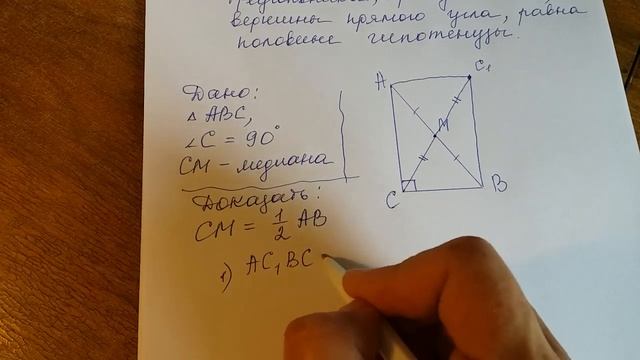 вершины прямого угла, равна
половине гипотенузы.
Дано:
△ ABC,
∠C = 90°
CM - медиана
Доказать:
CM = 1/2 AB
1) AC₁BC
A
C₁
M
C
B